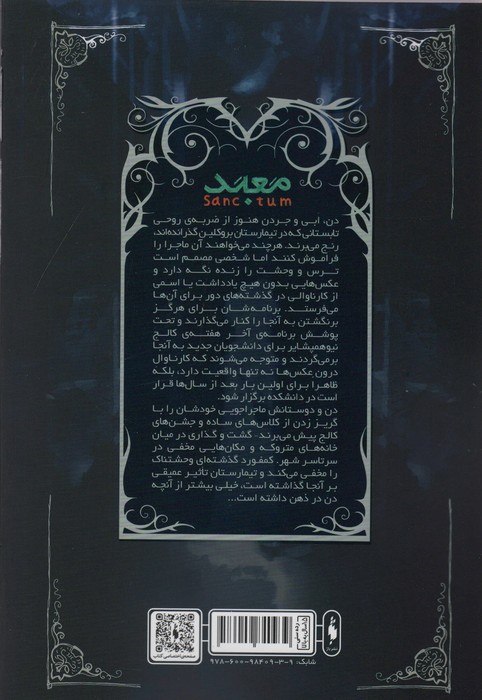 معبد
Sanctum
دن، ابی و جردن هنوز از ضربه‌ی روحی
تابستانی که در تیمارستان بروکلین گذرانده‌اند،
رنج می‌برند. هرچند می‌خواهند آن ماجرا را
فراموش کنند اما شخصی مصمم است
ترس و وحشت را زنده نگه دارد و
عکس‌هایی بدون هیچ یادداشت یا اسمی
از کارناوالی در گذشته‌های دور برای آن‌ها
می‌فرستد. برنامه‌شان برای هرگز
برنگشتن به آنجا را کنار می‌گذارند و تحت
پوشش برنامه‌ی آخر هفته‌ی کالج
نیوهمپشایر برای دانشجویان جدید به آنجا
برمی‌گردند و متوجه می‌شوند که کارناوال
درون عکس‌ها نه تنها واقعیت دارد، بلکه
ظاهرا برای اولین بار بعد از سال‌ها قرار
است در دانشکده برگزار شود.
دن و دوستانش ماجراجویی خودشان را با
گریز زدن از کلاس‌های ساده و جشن‌های
کالج پیش می‌برند- گشت و گذاری در میان
خانه‌های متروکه و مکان‌هایی مخفی در
سرتاسر شهر. کمفورد گذشته‌ای وحشتناک
را مخفی می‌کند و تیمارستان تأثیر عمیقی
بر آنجا گذاشته است، خیلی بیشتر از آنچه
دن در ذهن داشته است...
صفحه‌ی اختصاصی کتاب
رده سنی
۱۵ سال به بالا
شابک: ۹-۳-۹۸۴۰۹-۶۰۰-۹۷۸